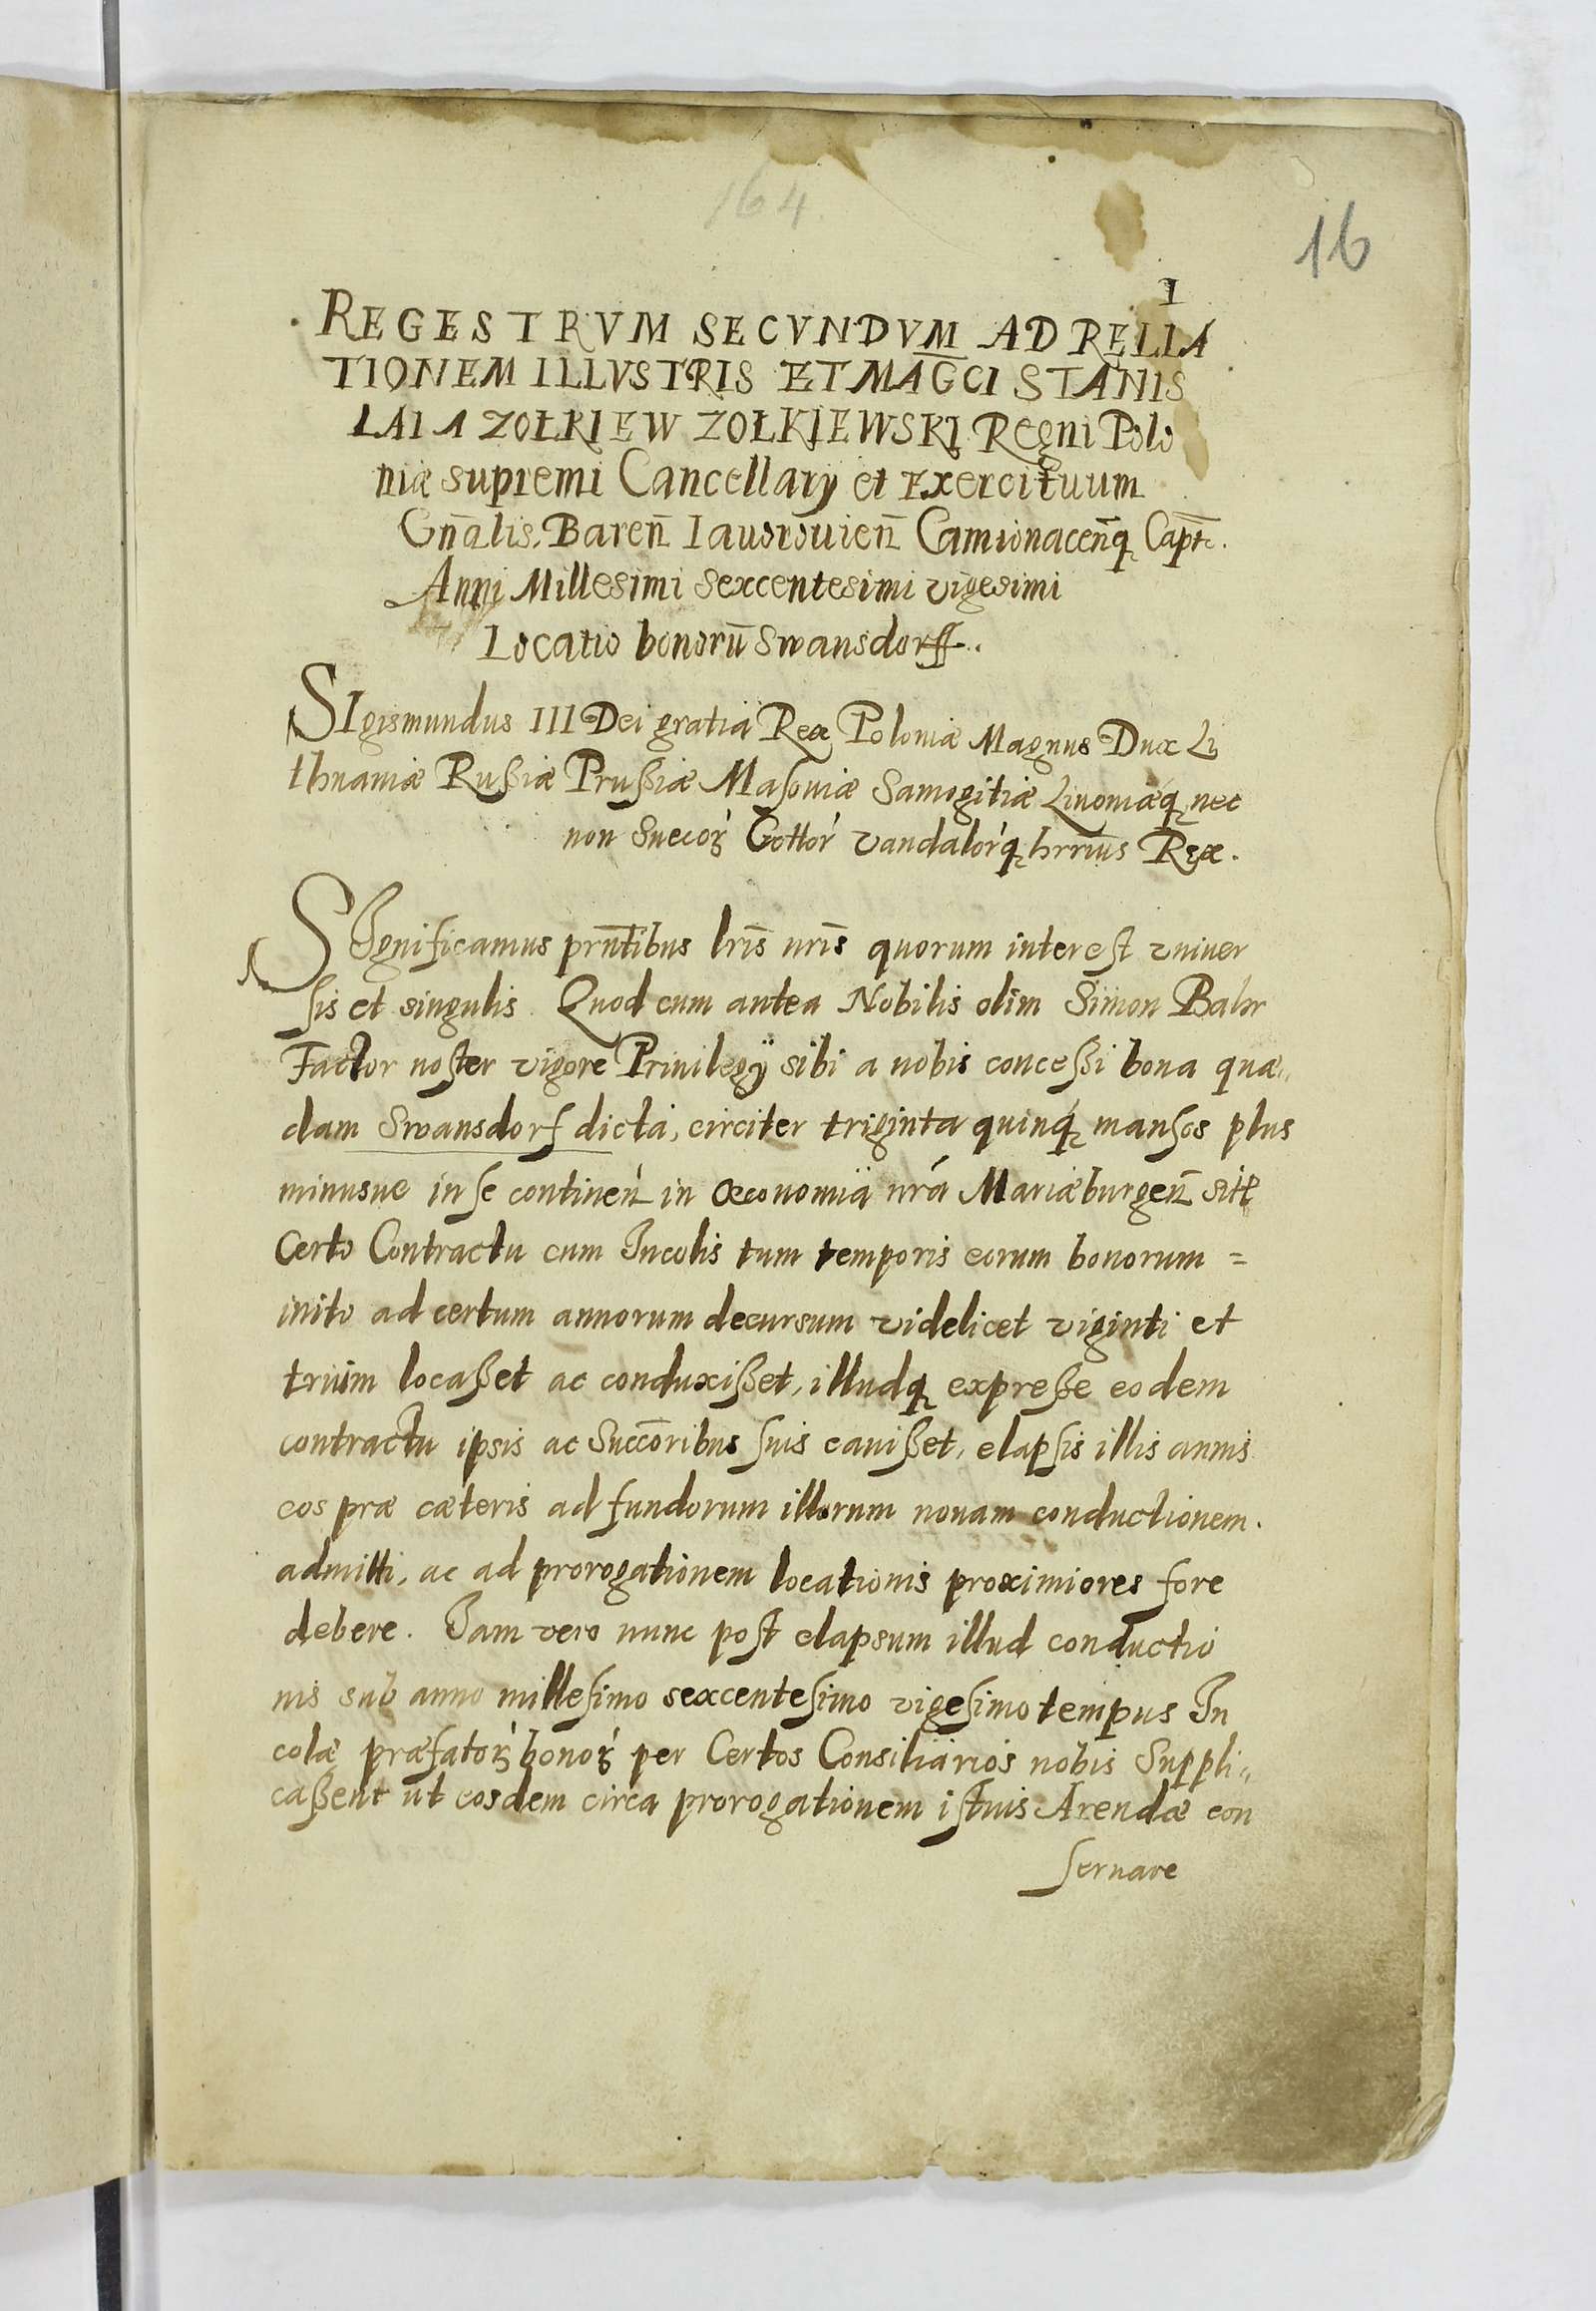 164
16
1
REGESTRVM SECVNDVM AD RELLA
TIONEM ILLVSTRIS ET MAG̅CI STANIS
LAI A ZOŁKIEW ZOŁKIEWSKI Regni Polo
niæ supremi Cancellarÿ et Exercituum
Gn̅alis. Baren̅ Iauorouien̅ Camionacen̅q Capt̅.
Anni Millesimi sexcentesimi vigesimi
Locatio bonorū Swansdorff.
SIgismundus III Dei gratia Rex Poloniæ Magnus Dux Li
thuaniæ Rußiæ Prußiæ Masouiæ Samogitiæ Liuoniæq nec
non Suecoꝝ Gottoꝝ vandaloꝝq hrr̅ius Rex.
SIgnificamus prn̅tibus lr̅is nr̅is quorum interest vniuer
sis et singulis. Quod cum antea Nobilis olim Simon Bahr
Factor noster vigore Priuilegÿ sibi a nobis conceßi bona quæ„
dam Swansdorf dicta, circiter triginta quinq mansos plus
minusue in se continen̅ in œconomia nrá Mariæburgen̅ sit̅
Certo Contractu cum Incolis tum temporis eorum bonorum =
inito ad certum annorum decursum videlicet viginti et
trium locaßet ac conduxißet, illudq expreße eodem
contractu ipsis ac Succ̅oribus suis cauißet, elapsis illis annis
eos præ cæteris ad fundorum illorum nouam conductionem.
admitti, ac ad prorogationem locationis proximiores fore
debere. Iam vero nunc post elapsum illud conductio
nis sub anno millesimo sexcentesimo vigesimo tempus In
colæ præfatoꝝ bonoꝝ per Certos Consiliarios nobis Suppli„
caßent ut eosdem circa prorogationem istius Arendæ con
seruare